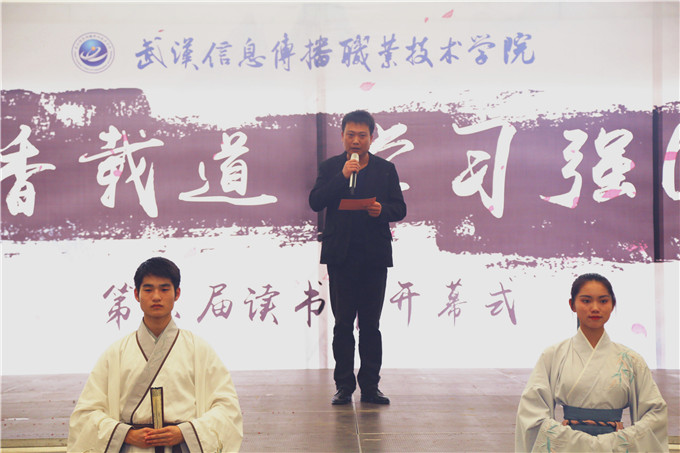 武漢信息傳播職業技术学院
香载道 学习强
第 届读书 开幕式